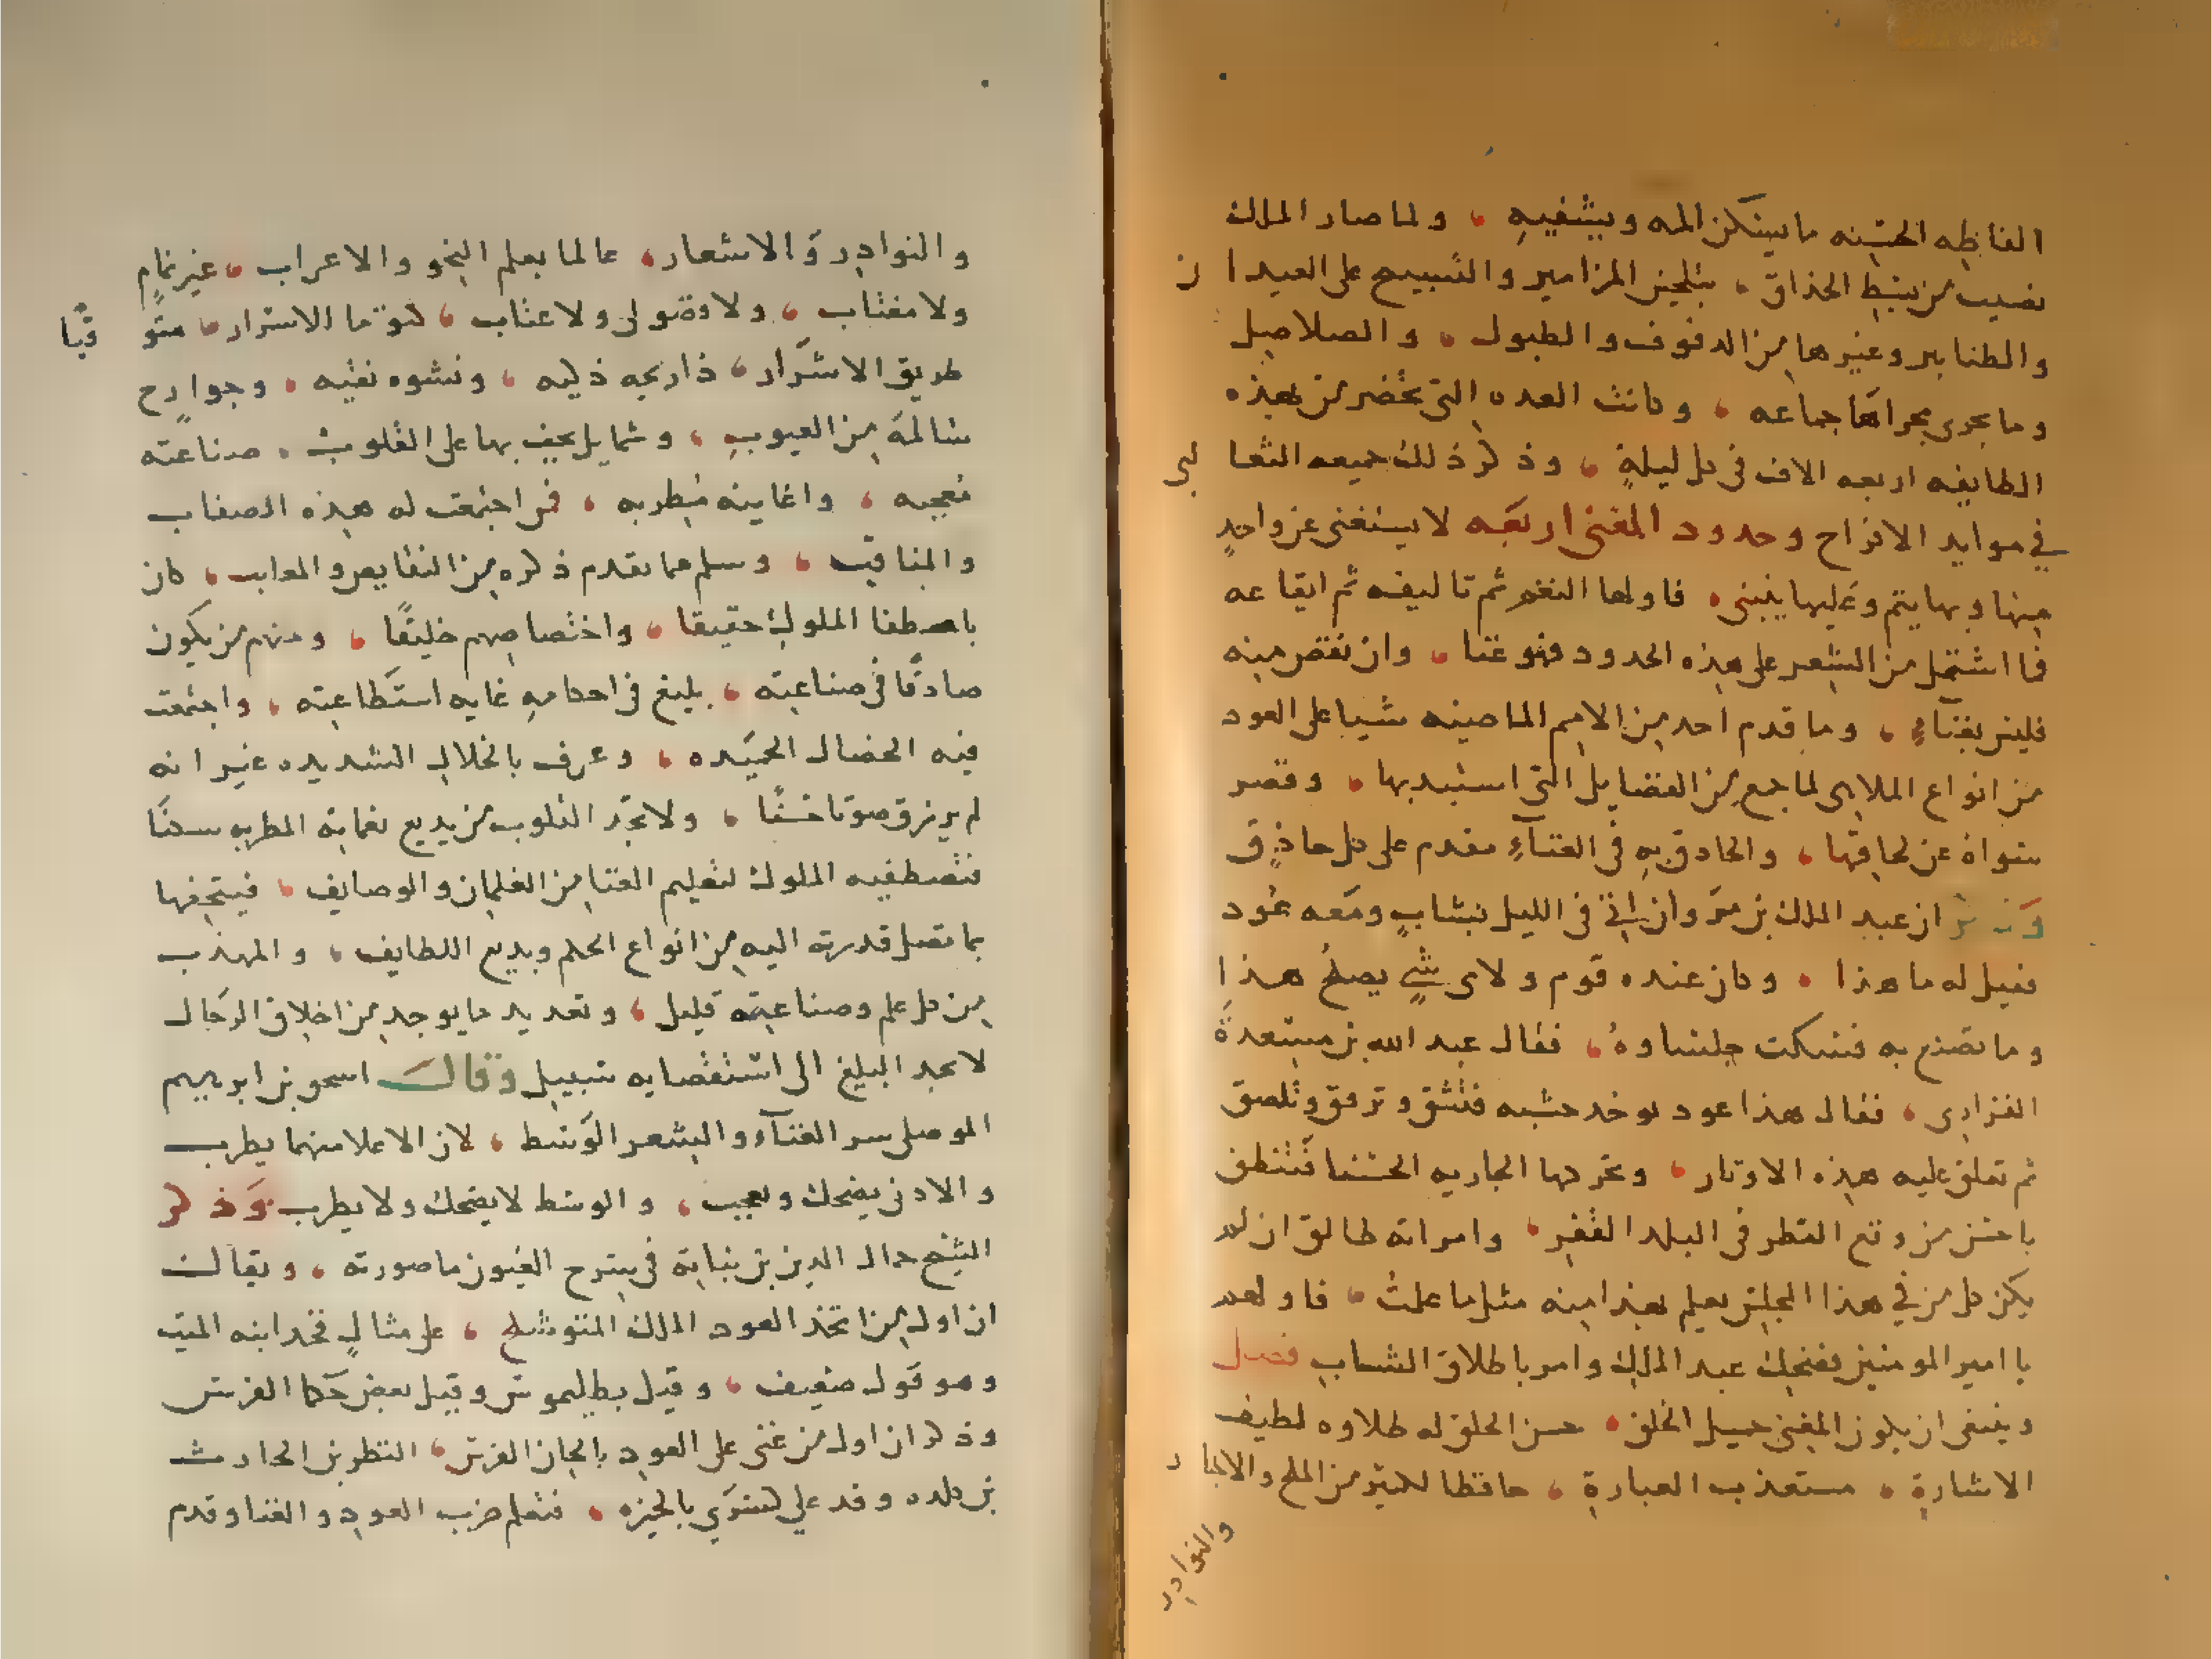 الفاظه الحسنه ما يسكن المه ويشفيه ، ولما صار الملك
نصيب من بسط الحذاق ، بتلحين المزامير والتسبيح على العيدان
والطنابير وغيرها من الدفوف والطبول ، والصلاصل
وما يجرى مجراها جماعه ، وكانت العده التى تحضر من هذه
الطايفه اربعه الاف فى كل ليلة ، وذكر ذلك جميعه الثعا لبى
في موايد الافراح وحدود المغنى اربعه لا يستغنى عن واحد
منها وبها يتم وعليها يبنى ، فاولها النغم ثم تاليفه ثم ايقاعه
فما اشتمل من الشعر على هذه الحدود فهو غنا ، وان نقص منه
فليس بغناء ، وما قدم احد من الامم الماضيه شيا على العود
من انواع الملاهى لما جمع من الفضايل التى استبد بها ، وقصر
سواه عن لحاقها ، والحاذق به فى الغناء مقدم على كل حاذق
ان عبد الملك بن مروان اتي فى الليل بشاب ومعه عود
فقيل له ما هذا ، وكان عنده قوم ولاى شي يصلح هذا
وما تصنع به فسكت جلساوه ، فقال عبد الله بن مسعدة
الفزارى ، فقال هذا عود يوخد خشبه فتشق وترقق وتلصق
ثم تعلق عليه هذه الاوتار ، وتحركها الجاريه الحسنا فتنطق
باحسن من وقع القطر فى البلد القفر ، وامراته طالق ان لم
يكن كل من في هذا المجلس يعلم هذا منه مثل ما علمت ، فاولهم
يا امير المومنين فضحك عبد الملك وامر باطلاق الشاب فصل
وينبغى ان يكون المغنى جميل الخلق ، حسن الحلق له طلاوه لطيف
الاشارة ، مستعذب العبارة ، حافظا لكثير من الملح والاخبار
والنوادر
والنوادر والاشعار ، عالما بعلم النحو والاعراب ، غير نمام
ولا مغتاب ، ولا فضولى ولا عتاب ، كتوما للاسرار ، متوقيا
طريق الاشرار ، ذا ريحه ذكيه ، ونشوه نقيه ، وجوارح
سالمة من العيوب ، وشمايل يخف بها على القلوب ، صناعته
معجبه ، واغانيه مطربه ، فمن اجتمعت له هذه الصفات
والمناقب ، وسلم مما تقدم ذكره من النقايص والمعايب ، كان
باصطفا الملوك حقيقا ، واختصاصهم خليقًا ، ومنهم من يكون
صادقا فى صناعته ، بليغ فى احكامه غايه استطاعته ، واجتمعت
فيه الخصال الحميده ، وعرف بالخلال السديده غير انه
لم يرزق صوتا حسنًا ، ولا تجد القلوب من بديع نغماته المطربه سكنًا
فتصطفيه الملوك لتعليم الغنا من الغلمان والوصايف ، فيتحفها
بما تصل قدرته اليه من انواع الحكم وبديع اللطايف ، والمهذب
من كل علم وصناعته قليل ، وتعديد ما يوجد من اخلاق الرجال
لا يجد البليغ الى استقصايه سبيل وقال اسحق بن ابرهيم
الموصلى سر الغناء والشعر الوسط ، لان الاعلا منهما يطرب
والادنى يضحك ويعجب ، والوسط لا يضحك ولا يطرب وذكر
الشيخ جمال الدين بن نباته فى شرح العيون ما صورته ، ويقال
ان اول من اتخذ العود الملك المتوشلح ، على مثال فخد ابنه الميت
وهو قول ضعيف ، وقيل بطليموس وقيل بعض حكما الفرس
وذكر ان اول من غنى على العود بالحان الفرس ، النظر بن الحارث
بن كلده وفد على كسرى بالحيره ، فتعلم ضرب العود والغنا وقدم